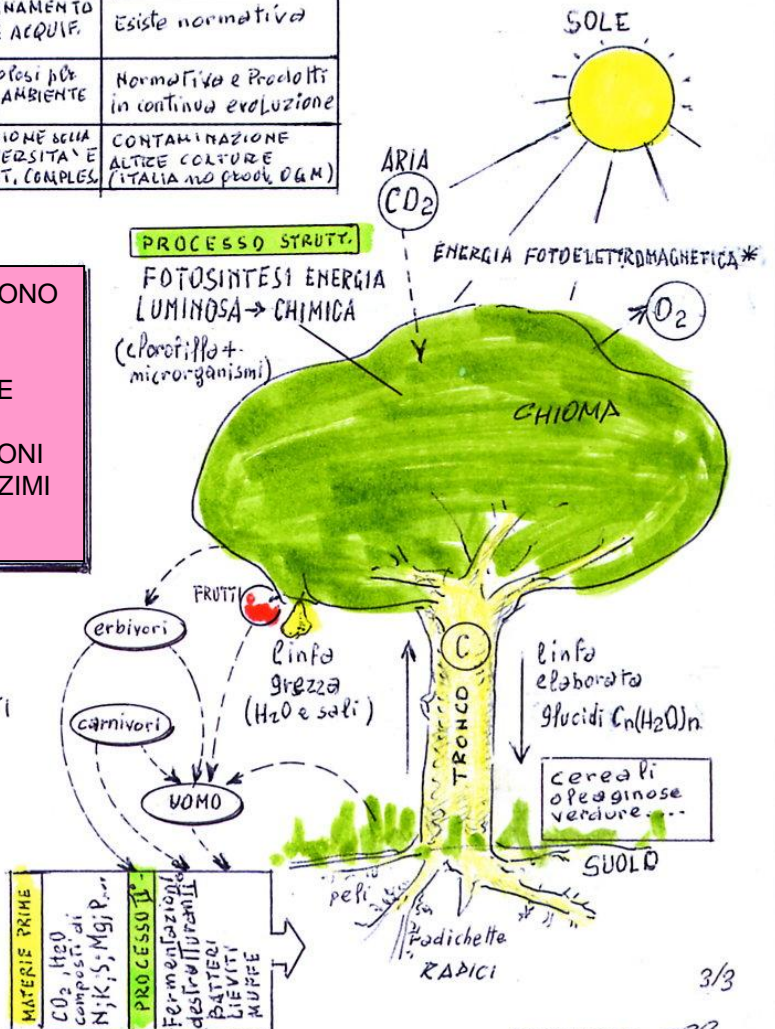 NAMENTO
E ACQUIF.
Esiste normativa
AMBIENTE
Normativa e Prodotti
in continua evoluzione
ERSITA' E
T. COMPLES.
CONTAMINAZIONE
ALTRE COLTURE
(ITALIA no prod. OGM)
SOLE
ARIA
CO2
PROCESSO STRUTT.
FOTOSINTESI ENERGIA
LUMINOSA → CHIMICA
(clorofilla +
microrganismi)
ENERGIA FOTOELETTROMAGNETICA*
O2
ONO
E
ONI
ZIMI
CHIOMA
FRUTTI
erbivori
carnivori
UOMO
linfa
grezza
(H2O e sali)
C
TRONCO
linfa
elaborata
glucidi Cn(H2O)n
cereali
oleaginose
verdure....
SUOLO
peli
radichette
RADICI
TI
MATERIE PRIME
CO2, H2O
composti di
N; K; S; Mg; P...
PROCESSO II°-
Fermentazione
destrutturanti
BATTERI
LIEVITI
MUFFE
3/3